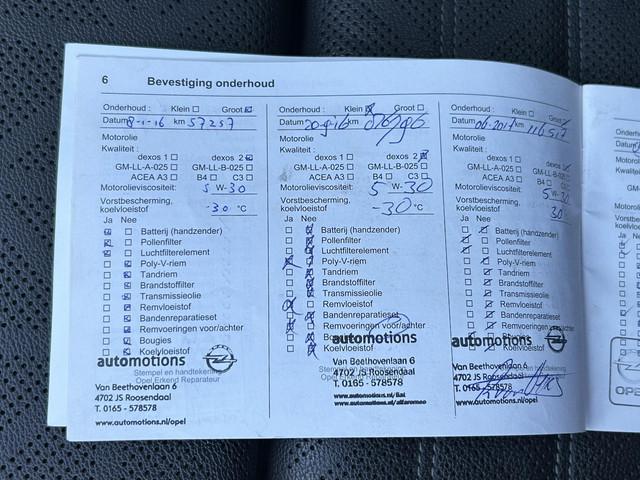 6 Bevestiging onderhoud
Onderhoud : Klein Groot
Datum 8-1-16 km 57257
Motorolie
Kwaliteit :
dexos 1 dexos 2
GM-LL-A-025 GM-LL-B-025
ACEA A3 B4 C3
Motorolieviscositeit: 5 W-30
Vorstbescherming,
koelvloeistof -30 °C
Ja Nee
Batterij (handzender)
Pollenfilter
Luchtfilterelement
Poly-V-riem
Tandriem
Brandstoffilter
Transmissieolie
Remvloeistof
Bandenreparatieset
Remvoeringen voor/achter
Bougies
Koelvloeistof
automotions
Stempel en handtekening
Opel Erkend Reparateur
Van Beethovenlaan 6
4702 JS Roosendaal
T. 0165 - 578578
www.automotions.nl/opel
Onderhoud : Klein Groot
Datum km
Motorolie
Kwaliteit :
dexos 1 dexos 2
GM-LL-A-025 GM-LL-B-025
ACEA A3 B4 C3
Motorolieviscositeit: 5 W-30
Vorstbescherming,
koelvloeistof -30 °C
Ja Nee
Batterij (handzender)
Pollenfilter
Luchtfilterelement
Poly-V-riem
Tandriem
Brandstoffilter
Transmissieolie
Remvloeistof
Bandenreparatieset
Remvoeringen voor/achter
Koelvloeistof
automotions
Van Beethovenlaan 6
4702 JS Roosendaal
T. 0165 - 578578
www.automotions.nl/fiat
www.automotions.nl/alfaromeo
Onderhoud : Klein Groot
Datum 06-2017 km
Motorolie
Kwaliteit :
dexos 1 dexos 2
GM-LL-A-025 GM-LL-B-025
ACEA A3 B4 C3
Motorolieviscositeit: 5 W-30
Vorstbescherming,
koelvloeistof 30
Ja Nee
Batterij (handzender)
Pollenfilter
Luchtfilterelement
Poly-V-riem
Tandriem
Brandstoffilter
Transmissieolie
Remvloeistof
Bandenreparatieset
Remvoeringen voor/achter
Koelvloeistof
automotions
Van Beethovenlaan 6
4702 JS Roosendaal
T. 0165 - 578578
www.automotions.nl/opel